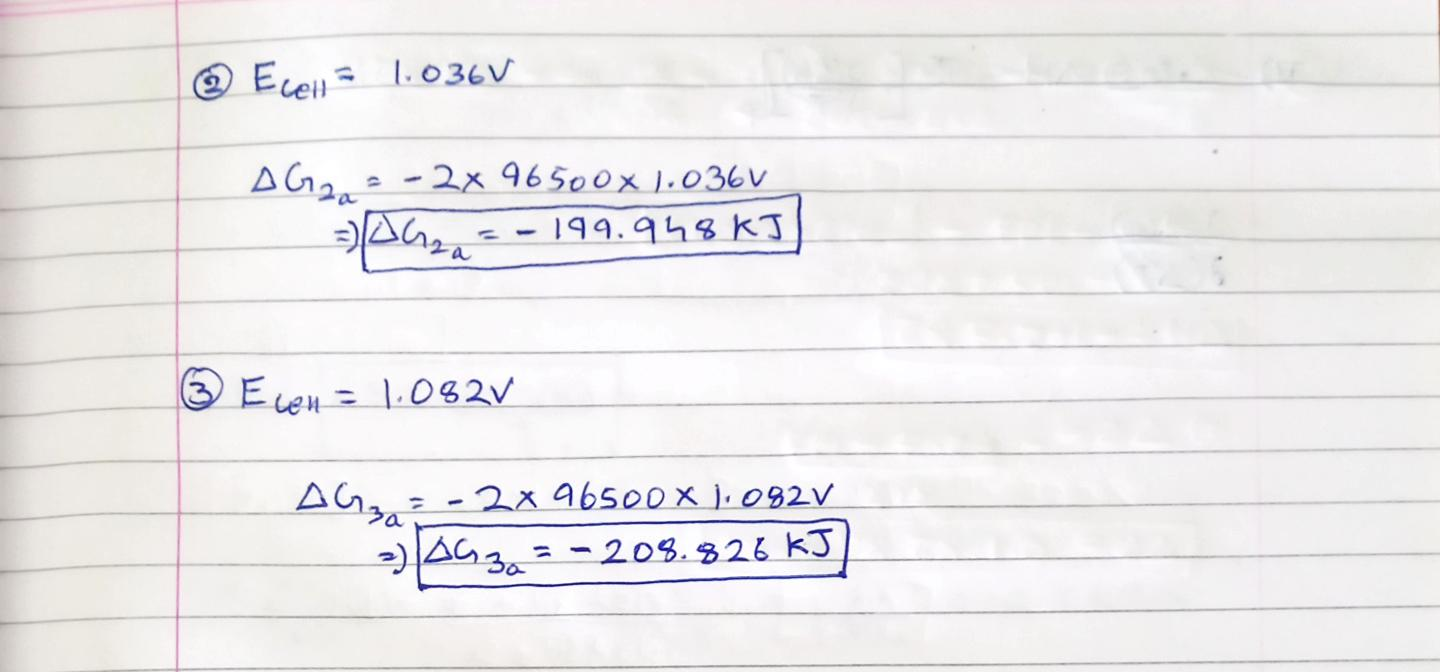 ② Ecell = 1.036V
ΔG2a = - 2 x 96500 x 1.036V
=) ΔG2a = - 199.948 KJ
③ Ecell = 1.082V
ΔG3a = - 2 x 96500 x 1.082V
=) ΔG3a = - 208.826 KJ